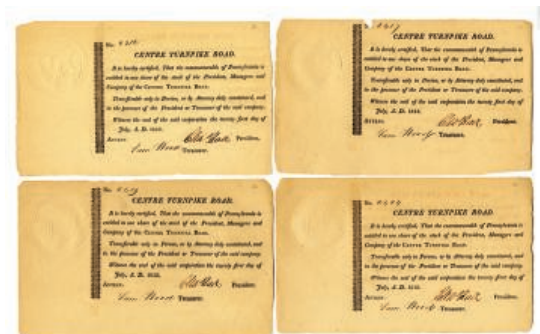 No.
CENTRE TURNPIKE ROAD.
It is hereby certified, That the commonwealth of Pennsylvania is
entitled to one share of the stock of the President, Managers and
Company of the CENTRE TURNPIKE ROAD.
Transferable only in Person, or by Attorney duly constituted, and
in the presence of the President or Treasurer of the said company.
Witness the seal of the said corporation the twenty first day of
July, A. D. 
ATTEST. President.
Treasurer.
No.
CENTRE TURNPIKE ROAD.
It is hereby certified, That the commonwealth of Pennsylvania is
entitled to one share of the stock of the President, Managers and
Company of the CENTRE TURNPIKE ROAD.
Transferable only in Person, or by Attorney duly constituted, and
in the presence of the President or Treasurer of the said company.
Witness the seal of the said corporation the twenty first day of
July, A. D.
ATTEST. President.
Treasurer.
No.
CENTRE TURNPIKE ROAD.
It is hereby certified, That the commonwealth of Pennsylvania is
entitled to one share of the stock of the President, Managers and
Company of the CENTRE TURNPIKE ROAD.
Transferable only in Person, or by Attorney duly constituted, and
in the presence of the President or Treasurer of the said company.
Witness the seal of the said corporation the twenty first day of
July, A. D.
ATTEST. President.
Treasurer.
No.
CENTRE TURNPIKE ROAD.
It is hereby certified, That the commonwealth of Pennsylvania is
entitled to one share of the stock of the President, Managers and
Company of the CENTRE TURNPIKE ROAD.
Transferable only in Person, or by Attorney duly constituted, and
in the presence of the President or Treasurer of the said company.
Witness the seal of the said corporation the twenty first day of
July, A. D.
ATTEST. President.
Treasurer.